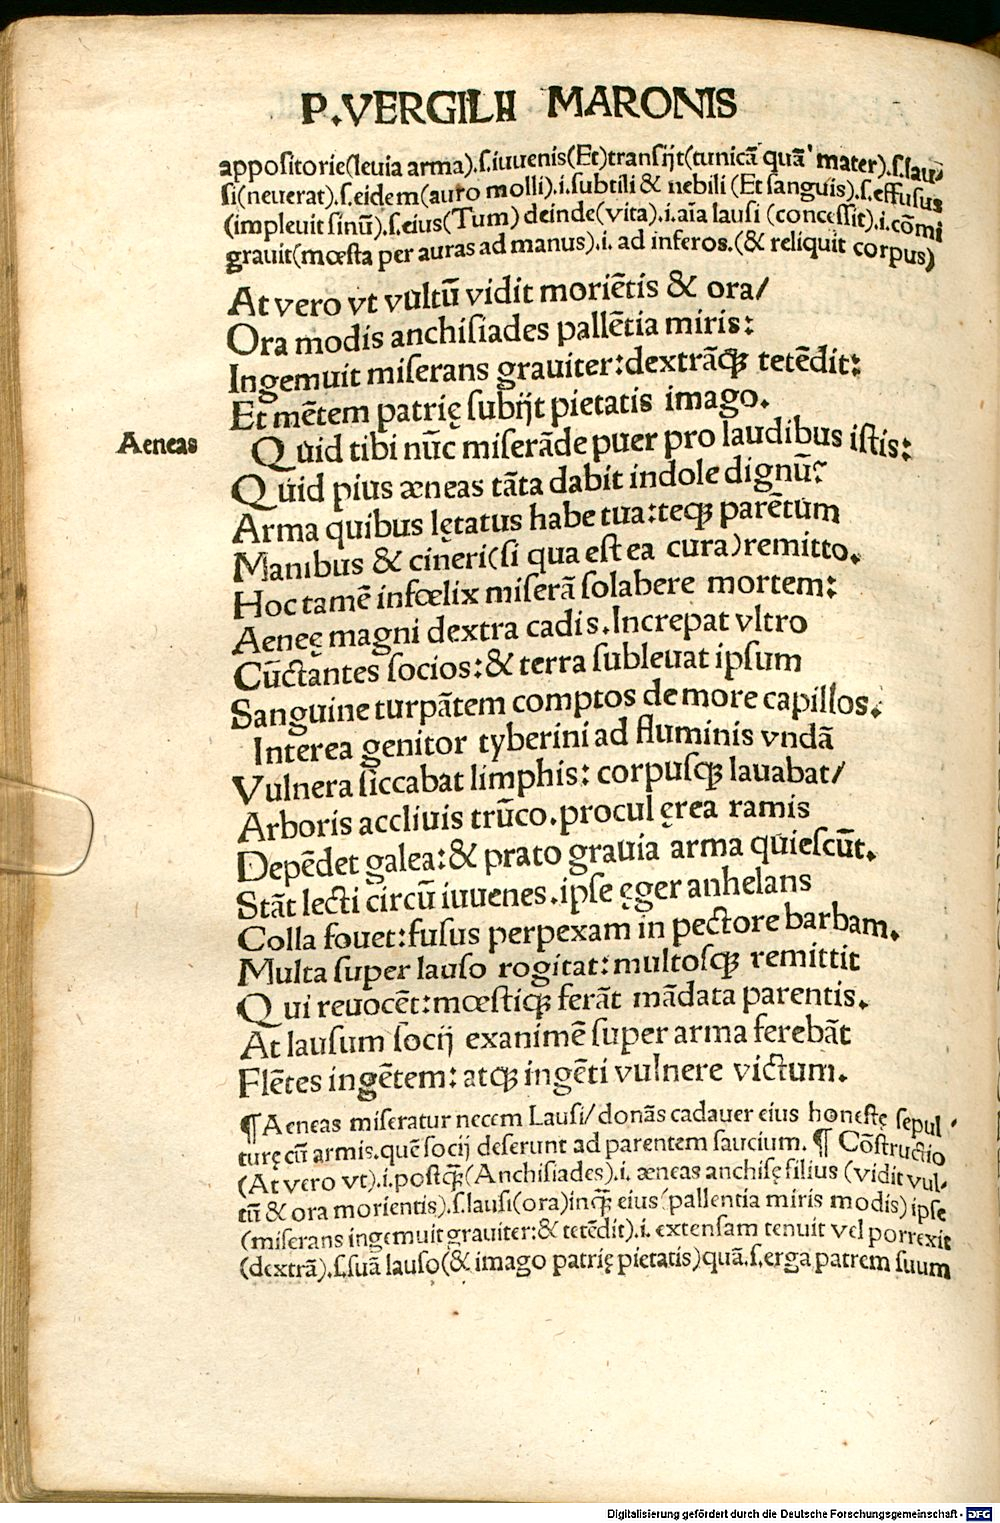 P.VERGILII MARONIS
appositorie(leuia arma).ſ.iuuenis(Et)tranſijt(tunicā quā mater).ſ.lau/
ſi(neuerat).ſ.eidem(auro molli).i.ſubtili & nebili (Et ſanguis).ſ.effuſus
(impleuit ſinū).ſ.eius(Tum) deinde(vita).i.aīa lauſi (conceſſit).i.cōmi
grauit(mœſta per auras ad manus).i. ad inferos.(& reliquit corpus)
At vero vt vultū vidit moriētis & ora/
Ora modis anchiſiades pallētia miris:
Ingemuit miſerans grauiter:dextrāqȝ tetēdit:
Et mētem patrię ſubijt pietatis imago.
Aeneas
Quid tibi nūc miſerāde puer pro laudibus iſtis:
Quid pius æneas tāta dabit indole dignū?
Arma quibus lętatus habe tua:teqȝ parētum
Manibus & cineri(ſi qua eſt ea cura)remitto.
Hoc tamē infœlix miſerā ſolabere mortem:
Aeneę magni dextra cadis.Increpat vltro
Cūctantes ſocios:& terra ſubleuat ipſum
Sanguine turpātem comptos de more capillos.
Interea genitor tyberini ad fluminis vndā
Vulnera ſiccabat limphis: corpuſqȝ lauabat/
Arboris accliuis trūco.procul ęrea ramis
Depēdet galea:& prato grauia arma quieſcūt.
Stāt lecti circū iuuenes.ipſe ęger anhelans
Colla fouet:fuſus perpexam in pectore barbam.
Multa ſuper lauſo rogitat:multoſqȝ remittit
Qui reuocēt:mœſtiqȝ ferāt mādata parentis.
At lauſum ſocij exanimē ſuper arma ferebāt
Flētes ingētem: atqȝ ingēti vulnere victum.
¶Aeneas miſeratur necem Lauſi/donās cadauer eius honeſtę ſepul/
turę cū armis.quē ſocij deferunt ad parentem ſaucium. ¶ Cōſtructio
(At vero vt).i.poſtqȝ̄(Anchiſiades).i. æneas anchiſę filius (vidit vul/
tū & ora morientis).ſ.lauſi(ora)inqȝ̄ eius(pallentia miris modis) ipſe
(miſerans ingemuit grauiter:& tetēdit).i. extenſam tenuit vel porrexit
(dextrā).ſ.ſuā lauſo(& imago patrię pietatis)quā.ſ.erga patrem ſuum
Digitalisierung gefördert durch die Deutsche Forschungsgemeinschaft - DFG